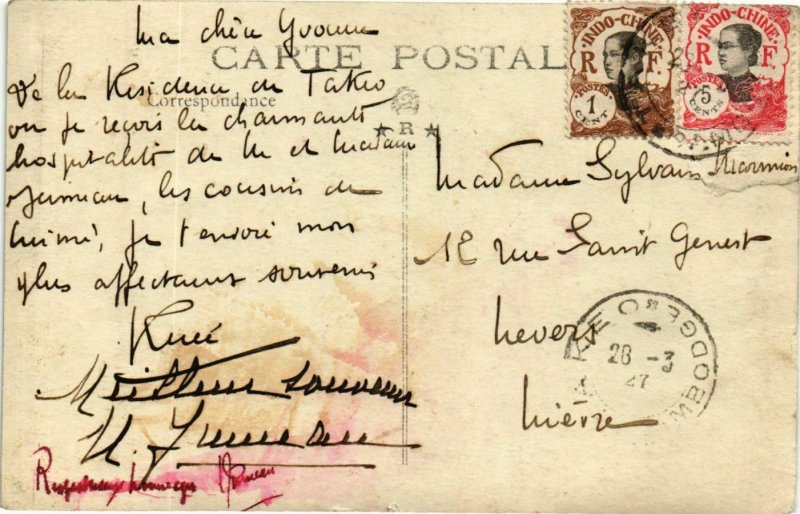 CARTE POSTALE
Correspondance
R
Ma chère Yvonne
De la Résidence de Takeo
où je reçois la charmante
hospitalité de M et Madame
Jumeau, les cousins de
Mimi, je t'envoie mon
plus affectueux souvenir
René
Meilleur souvenir
M. Jumeau
Respectueux hommages
INDO-CHINE
R F
POSTES
1
CENT
INDO-CHINE
R F
POSTES
5
CENTS
Madame Sylvain Marmion
12 rue Saint Genest
Nevers
Nièvre
TAKEO CAMBODGE
28-3
27